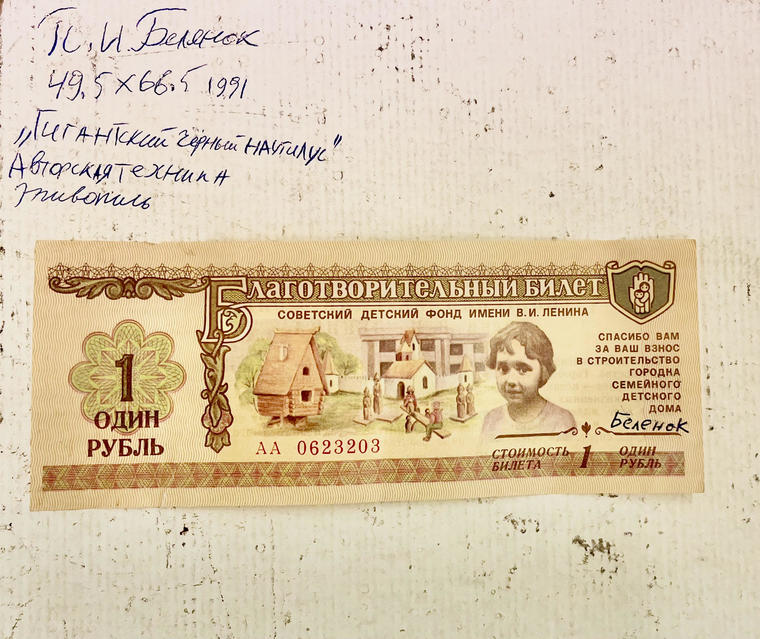 П. И. Беленок
49.5 × 68.5 1991
„Гигантский чёрный наутилус"
Авторская техника
живопись
Благотворительный билет
СОВЕТСКИЙ ДЕТСКИЙ ФОНД ИМЕНИ В.И. ЛЕНИНА
СПАСИБО ВАМ
ЗА ВАШ ВЗНОС
В СТРОИТЕЛЬСТВО
ГОРОДКА
СЕМЕЙНОГО
ДЕТСКОГО
ДОМА
Беленок
1
ОДИН
РУБЛЬ
АА 0623203
СТОИМОСТЬ
БИЛЕТА
1
ОДИН
РУБЛЬ